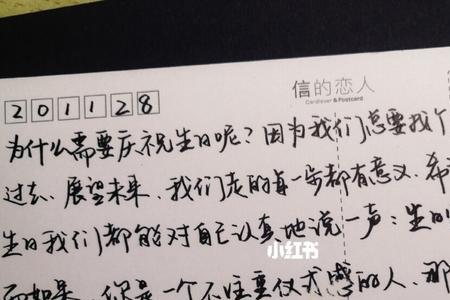 信的恋人
Cardlover & Postcard
201128
为什么需要庆祝生日呢？因为我们总要找个
过去、展望未来，我们走的每一步都有意义，希
生日我们都能对自己认真地说一声：生日
小红书
而如果，你是一个不注重仪式感的人，那